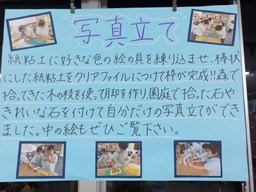 写真立て
紙粘土に好きな色の絵の具を練り込ませ、棒状
にした紙粘土をクリアファイルにつけて枠が完成!!森で
拾ってきた木の枝を使って月却を作り、園庭で拾った石や
きれいな石を付けて自分だけの写真立てができ
ました。中の絵もぜひご覧下さい。